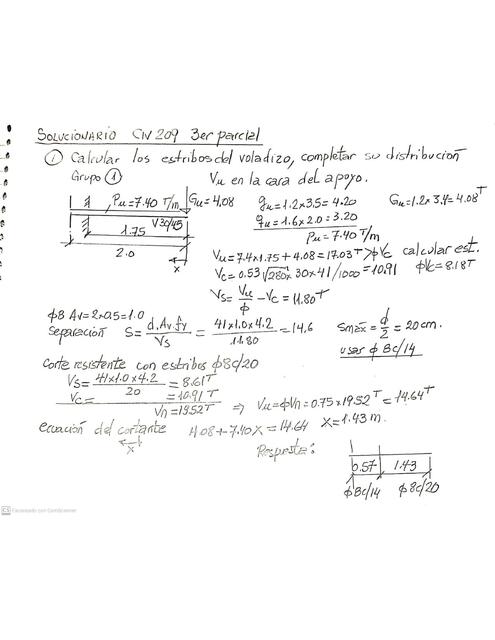 SOLUCIONARIO CIV 209 3er parcial
① Calcular los estribos del voladizo, completar su distribución
Grupo ① Vu en la cara del apoyo.
Pu=7.40 T/m Gu=4.08
V30/45
1.75
2.0
x
gu=1.2x3.5=4.20 Gu=1.2x3.4=4.08T
qu=1.6x2.0=3.20
Pu=7.40T/m
Vu=7.4x1.75+4.08=17.03T>φVc calcular est.
Vc=0.53√280x30x41/1000=10.91 φVc=8.18T
Vs=Vu/φ-Vc=11.80T
φ8 Av=2x0.5=1.0
separación S=d.Av.fy/Vs=41x1.0x4.2/11.80=14.6 Smax=d/2=20cm.
usar φ8c/14
Corte resistente con estribos φ8c/20
Vs=41x1.0x4.2/20=8.61T
Vc= =10.91T
Vn=19.52T ⇒ Vu=φVn=0.75x19.52T=14.64T
ecuación del cortante 4.08+7.40X=14.64 X=1.43m.
x
Respuesta:
0.57 1.43
φ8c/14 φ8c/20
CS Escaneado con CamScanner